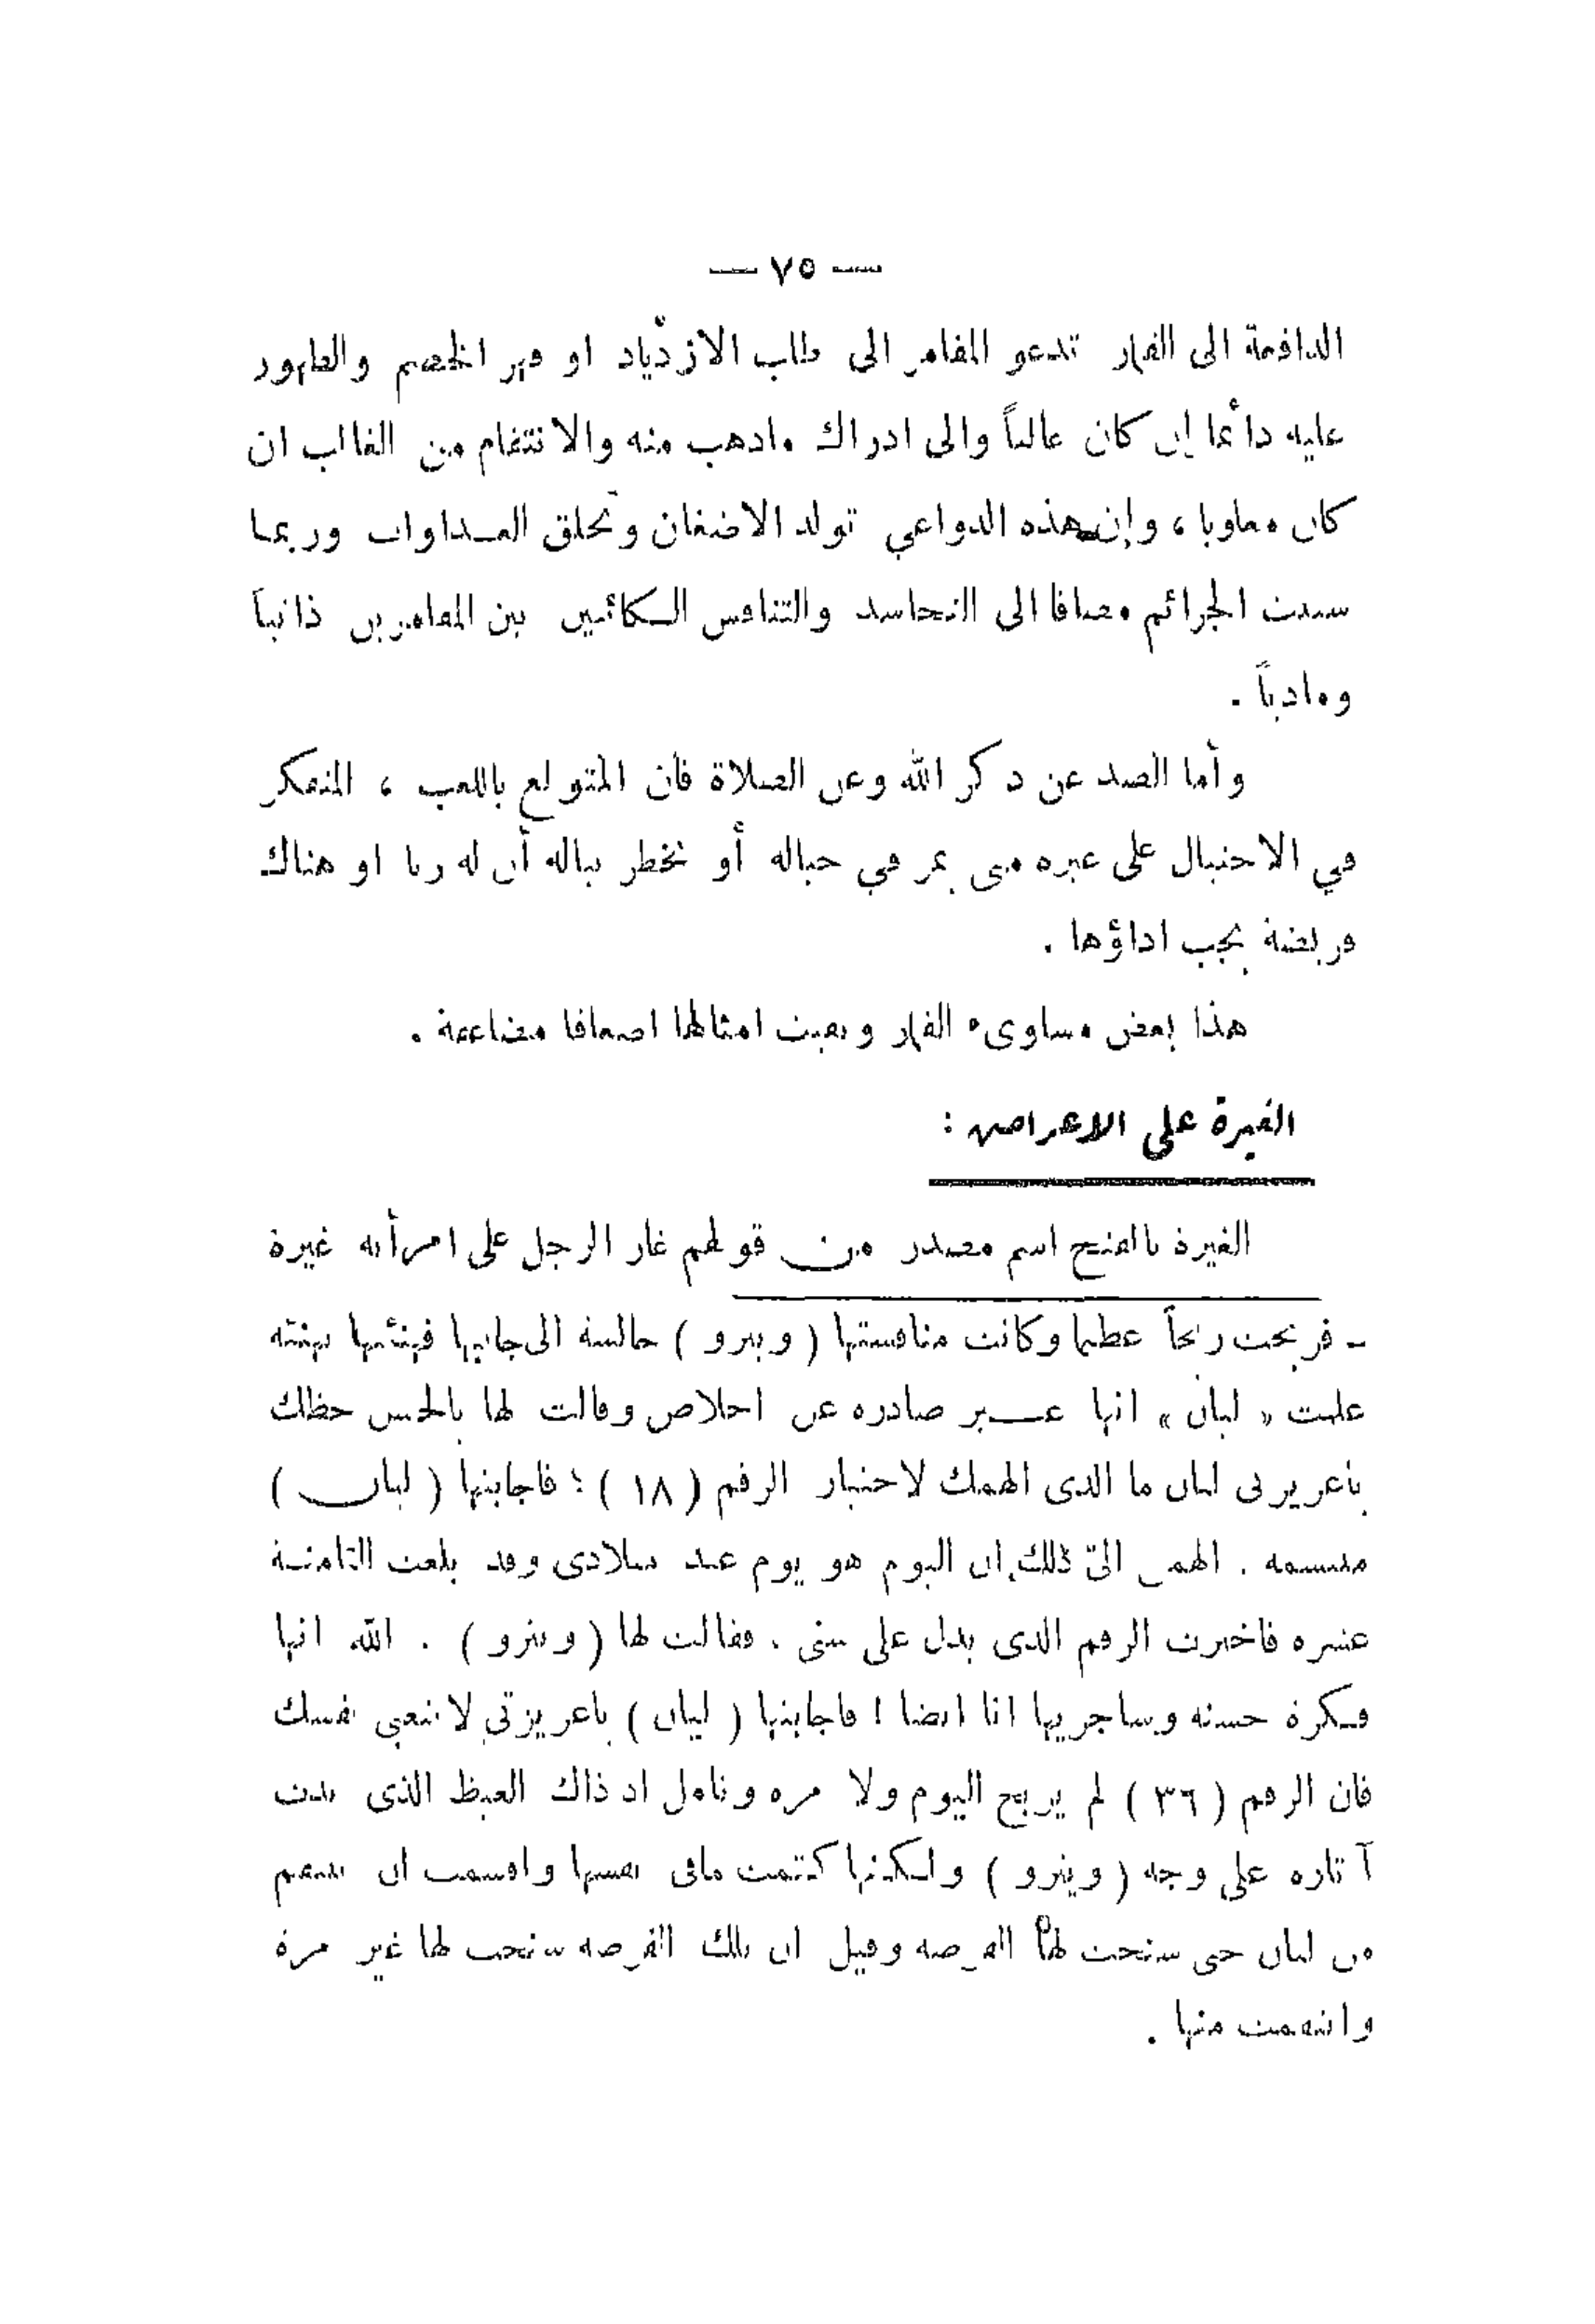 — ٧٥ —
الدافعة الى القمار تدعو المقامر الى طلب الازدياد او قهر الخصم والظهور
عليه دائما إن كان غالباً والى ادراك ماذهب منه والانتقام من الغالب ان
كان مغلوبا ، وإن هذه الدواعي تولد الاضغان وتخلق العداوات وربما
سببت الجرائم مضافا الى التحاسد والتنافس الكائنين بين المقامرين ذاتياً
ومادياً .
وأما الصد عن ذكر الله وعن الصلاة فان المتولع باللعب ، المتفكر
في الاحتيال على غيره متى يمر في خياله أو يخطر بباله أن له ربا او هناك
فريضة يجب اداؤها .
هذا بعض مساوىء القمار وبقيت امثالها اضعافا مضاعفة .
الغيرة على الاعراض :
الغيرة بالفتح اسم مصدر من قولهم غار الرجل على امرأته غيرة
ـ فربحت ربحاً عظيما وكانت منافستها ( وينرو ) جالسة الى جانبها فهنئتها تهنئة
علمت « ليان » انها غير صادره عن اخلاص وقالت لها يالحسن حظك
ياعزيزتى ليان ما الذى الهمك لاختيار الرقم ( ١٨ ) ؛ فاجابتها ( ليان )
مبتسمه . الهمنى الىّ ذلك ان اليوم هو يوم عيد ميلادى وقد بلغت الثامنة
عشره فاخترت الرقم الذى يدل على سنى . فقالت لها ( وينرو ) . الله انها
فكرة حسنه وساجربها انا ايضا ! فاجابتها ( ليان ) ياعزيزتي لا تتعبي نفسك
فان الرقم ( ٣٦ ) لم يربح اليوم ولا مره وتامل اذ ذاك الغيظ الذى بدت
آثاره على وجه ( وينرو ) ولكنها كتمت مافى نفسها واقسمت ان تنتقم
من ليان حتى سنحت لها الفرصه وقيل ان تلك الفرصه سنحت لها غير مرة
وانتقمت منها .